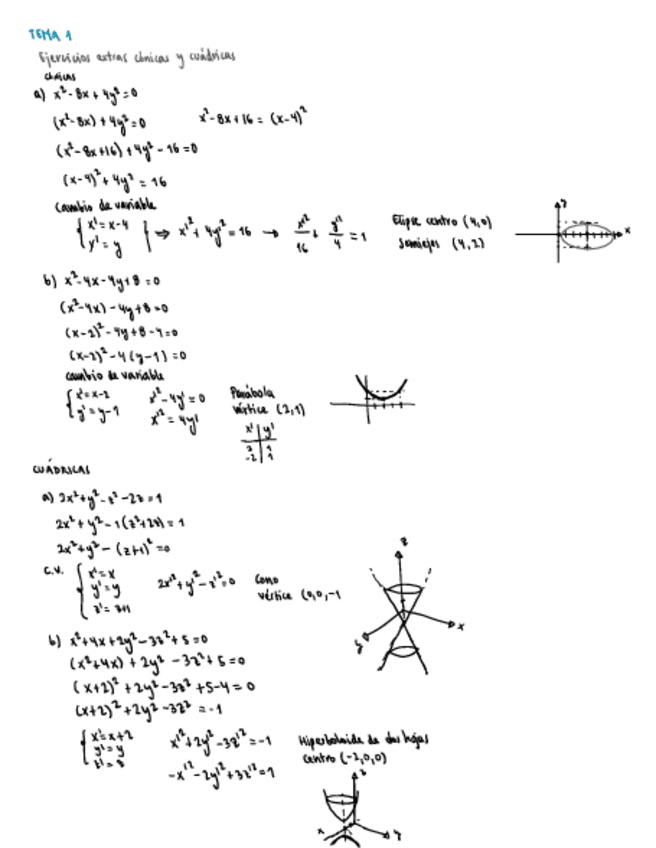 TEMA 1
Ejercicios extras cónicas y cuádricas
cónicas
a) x²-8x+4y²=0
(x²-8x)+4y²=0 x²-8x+16=(x-4)²
(x²-8x+16)+4y²-16=0
(x-4)²+4y²=16
Cambio de variable
{ x'=x-4 y'=y } ⇒ x'²+4y'²=16 → x'²/16 + y'²/4 = 1 Elipse centro (4,0) Semiejes (4,2)
y
x
b) x²-4x-4y+8=0
(x²-4x)-4y+8=0
(x-2)²-4y+8-4=0
(x-2)²-4(y-1)=0
cambio de variable
{ x'=x-2 x'²-4y'=0 Parábola
y'=y-1 x'²=4y' vértice (2,1)
x' | y'
2 | 1
-2 | 1
CUÁDRICAS
a) 2x²+y²-z²-2z=1
2x²+y²-1(z²+2z)=1
2x²+y²-(z+1)²=0
C.V. { x'=x y'=y z'=z+1 2x'²+y'²-z'²=0 Cono vértice (0,0,-1
z
y
x
b) x²+4x+2y²-3z²+5=0
(x²+4x)+2y²-3z²+5=0
(x+2)²+2y²-3z²+5-4=0
(x+2)²+2y²-3z²=-1
{ x'=x+2 y'=y z'=z x'²+2y'²-3z'²=-1 Hiperboloide de dos hojas
-x'²-2y'²+3z'²=1 centro (-2,0,0)
z
x
y